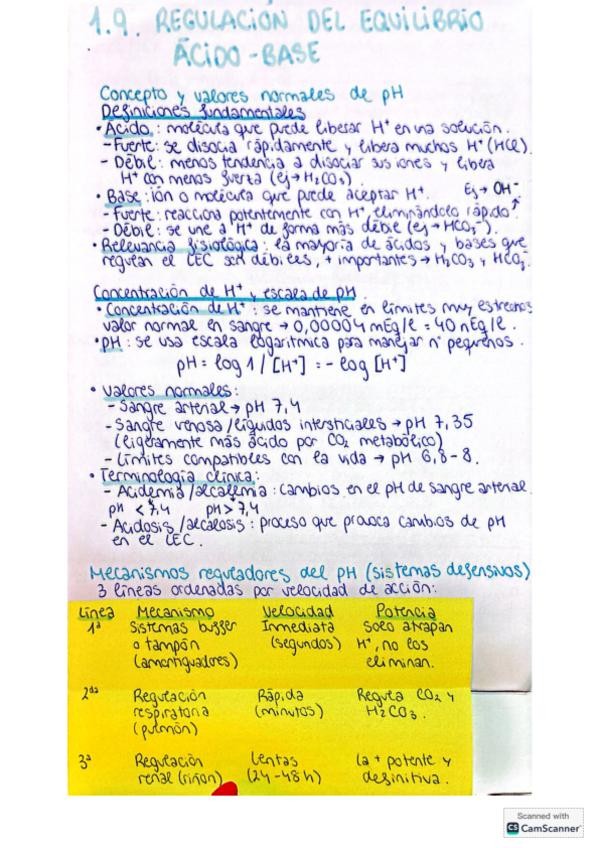 1.9. REGULACIÓN DEL EQUILIBRIO
ÁCIDO-BASE
Concepto y valores normales de pH
Definiciones fundamentales
• Ácido: molécula que puede liberar H⁺ en una solución.
- Fuerte: se disocia rápidamente y libera muchos H⁺ (HCl).
- Débil: menos tendencia a disociar sus iones y libera
H⁺ con menos fuerza (ej → H₂CO₃).
• Base: ión o molécula que puede aceptar H⁺. Ej → OH⁻
- Fuerte: reacciona potentemente con H⁺, eliminándolo rápido ↑
- Débil: se une a H⁺ de forma más débil (ej → HCO₃⁻).
• Relevancia fisiológica: la mayoría de ácidos y bases que
regulan el LEC son débiles, + importantes → H₂CO₃ y HCO₃⁻.
Concentración de H⁺ y escala de pH
• Concentración de H⁺: se mantiene en límites muy estrechos
valor normal en sangre → 0,00004 mEq/l = 40 nEq/l.
• pH: se usa escala logarítmica para manejar nº pequeños.
pH = log 1 / [H⁺] = - log [H⁺]
• Valores normales:
- Sangre arterial → pH 7,4
- Sangre venosa / líquidos intersticiales → pH 7,35
(ligeramente más ácido por CO₂ metabólico)
- Límites compatibles con la vida → pH 6,8-8.
• Terminología clínica:
- Acidemia / alcalemia: cambios en el pH de sangre arterial
pH < 7,4 pH > 7,4
- Acidosis / alcalosis: proceso que provoca cambios de pH
en el LEC.
Mecanismos reguladores del pH (sistemas defensivos)
3 líneas ordenadas por velocidad de acción:
Línea Mecanismo Velocidad Potencia
1ª Sistemas buffer Inmediata Solo atrapan
o tampón (segundos) H⁺, no los
(amortiguadores) eliminan.
2da Regulación Rápida Regula CO₂ y
respiratoria (minutos) H₂CO₃.
(pulmón)
3ª Regulación Lentas La + potente y
renal (riñón) (24-48h) definitiva.
Scanned with
CS CamScanner